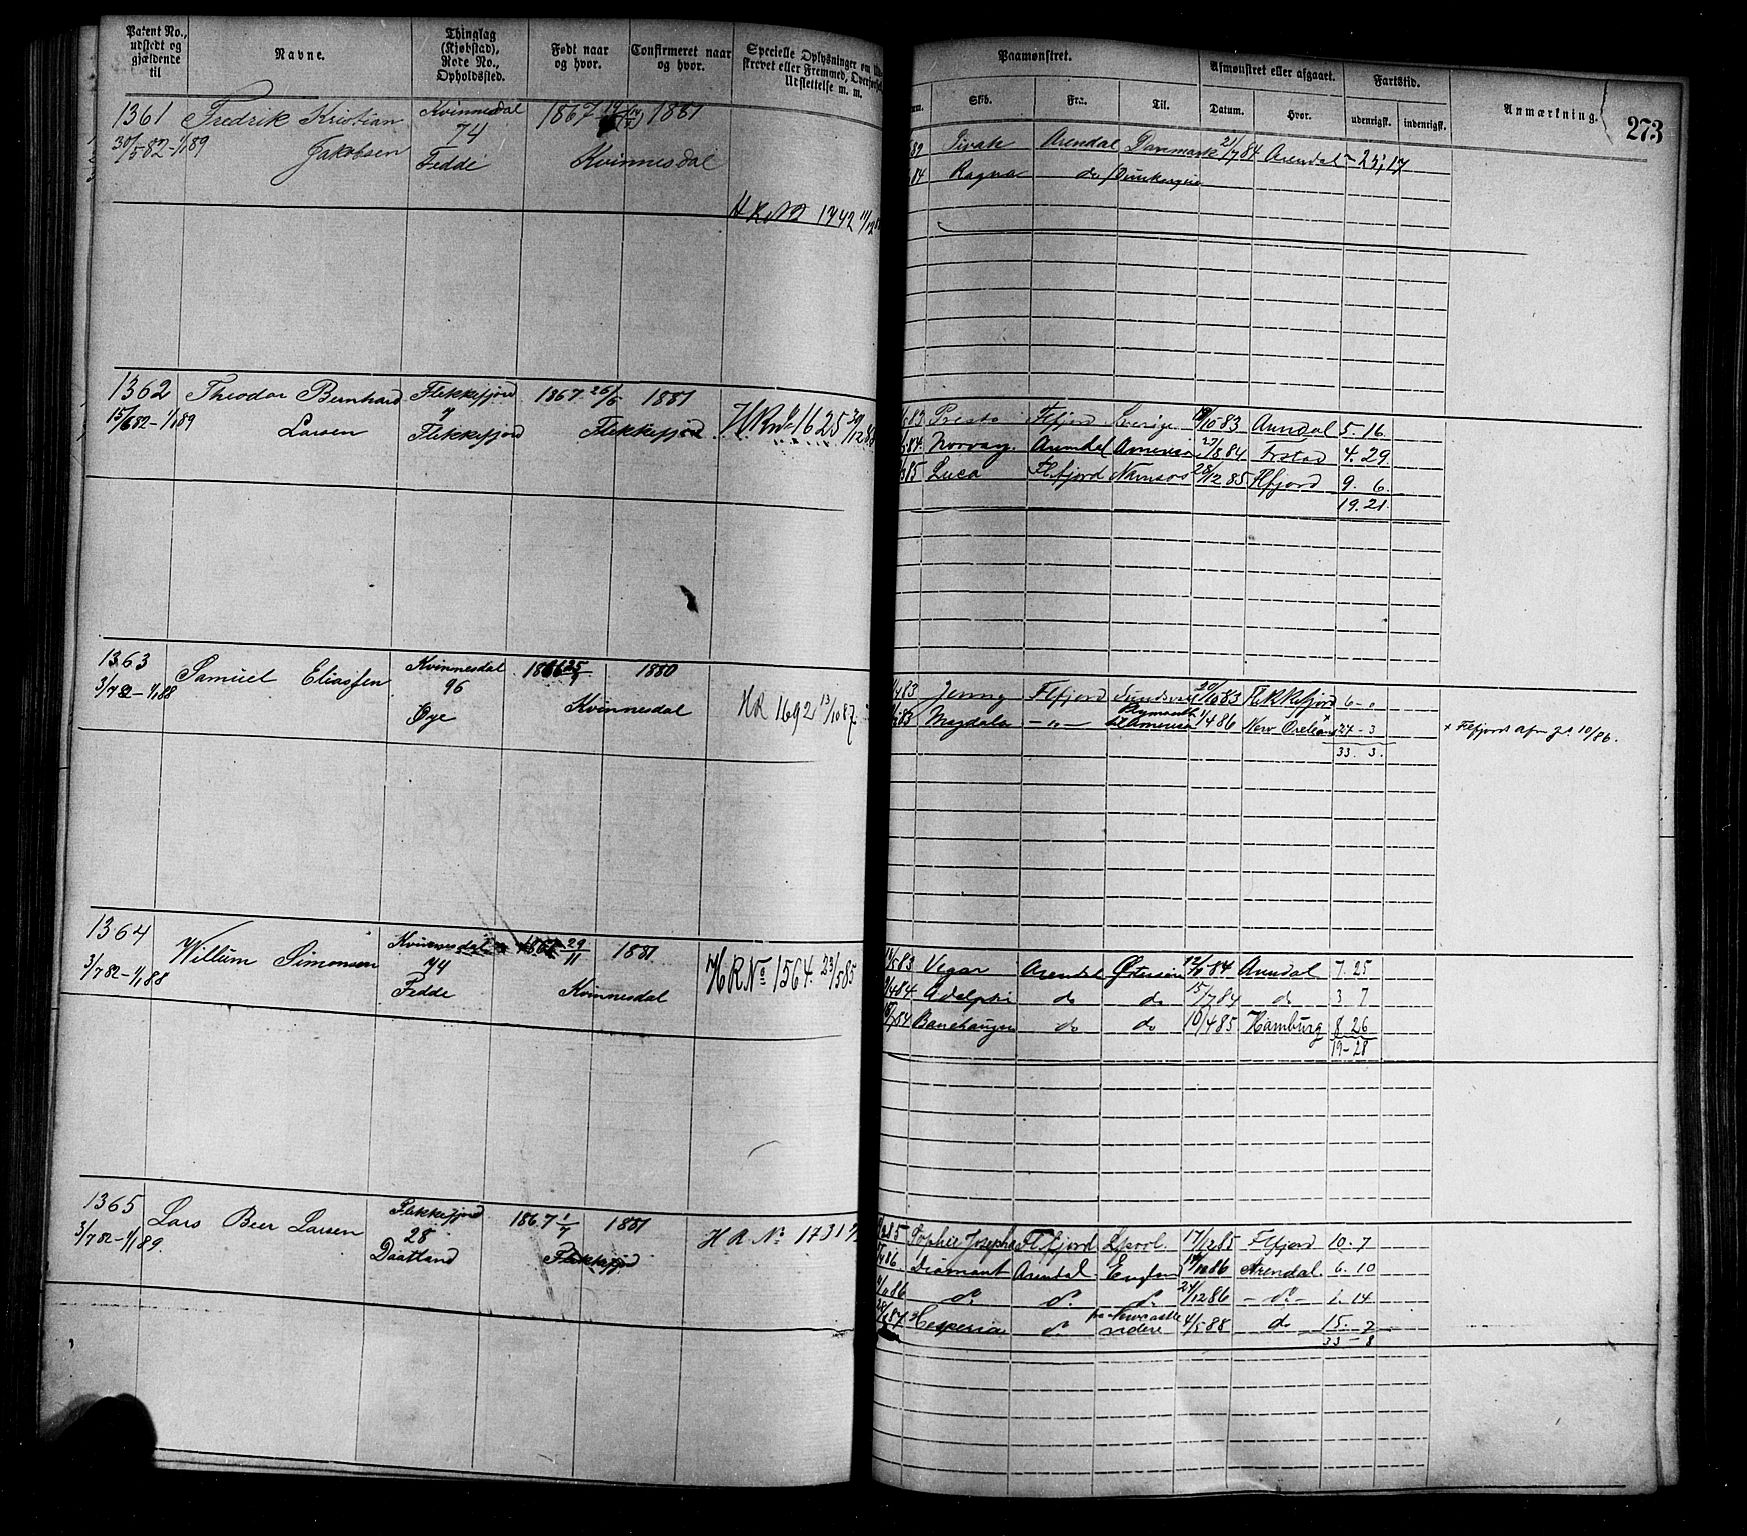 Patent No., udstedt og gjældende til
Navne.
Thinglag (Kjøbstad), Rode No., Opholdssted.
Født naar og hvor.
Confirmeret naar og hvor.
Specielle Oplysninger om
skrevet eller Fremmed, Overførsel
Udslettelse m. m.
Paamønstret.
Skib.
Fra:
Til.
Afmønstret eller afgaaet.
Datum.
Hvor.
Fartstid.
udenrigsk.
indenrigsk.
Anmærkning.
273
1361 Fredrik Kristian Kvinnesdal 1867 1881
30/5 82 – 1/1 89 Jakobsen 74
Fedde Kvinnesdal
1742
Arendal Danmark 21/7 84 Arendal
84 Ragna do
1362 Theodor Bernhard Flekkefjord 1867 26/5 1881
15/6 82 – 1/1 89 Larsen 7 Flekkefjord Flekkefjord HR No 1625
83 Presto Flfjord Sverige /10 83 Arendal 5. 16
84 Norway Arendal America 27/8 84 Frstad 4. 29
85 Luca Flfjord Namsos 28/12 85 Flfjord 9. 6.
19. 21
1363 Samuel Eliassen Kvinnesdal 1880
3/7 82 – 1/1 88 96
Øye Kvinnesdal HR 1692 13/10 87
83 Jenny Flfjord 20/10 83 Flekkefjord 6 – 0
83 Magdala – „ – Plymouth America 1/4 86 New Orleans × 27 – 3
33. 3.
× Flfjords afm jl 10/86.
1364 Willum Simonsen Kvinnesdal 29/11 1881
3/7 82 – 1/1 88 74
Fedde Kvinnesdal HR No 1564. 23/5 85
83 Vegar Arendal Østersøen 84 Arendal 7. 25
84 Adelphi do do 15/7 84 do 3 7
84 do do 10/4 85 Hamburg 8 26
19 – 28
1365 Lars Beer Larsen Flekkefjord 1867 1/7 1881
3/7 82 – 1/1 89. 28
Daatland Flekkefjord HR No 1731
85 Sophie Josepha Flfjord Lpool. 17/12 85 Flfjord 10. 7
86 Diamant Arendal England /10 86 Arendal 6. 10
86 do do do 24/12 86 – do – 1. 14
87 Hesperia do Newcastle videre 4/5 88 do 15. 7
33 – 8